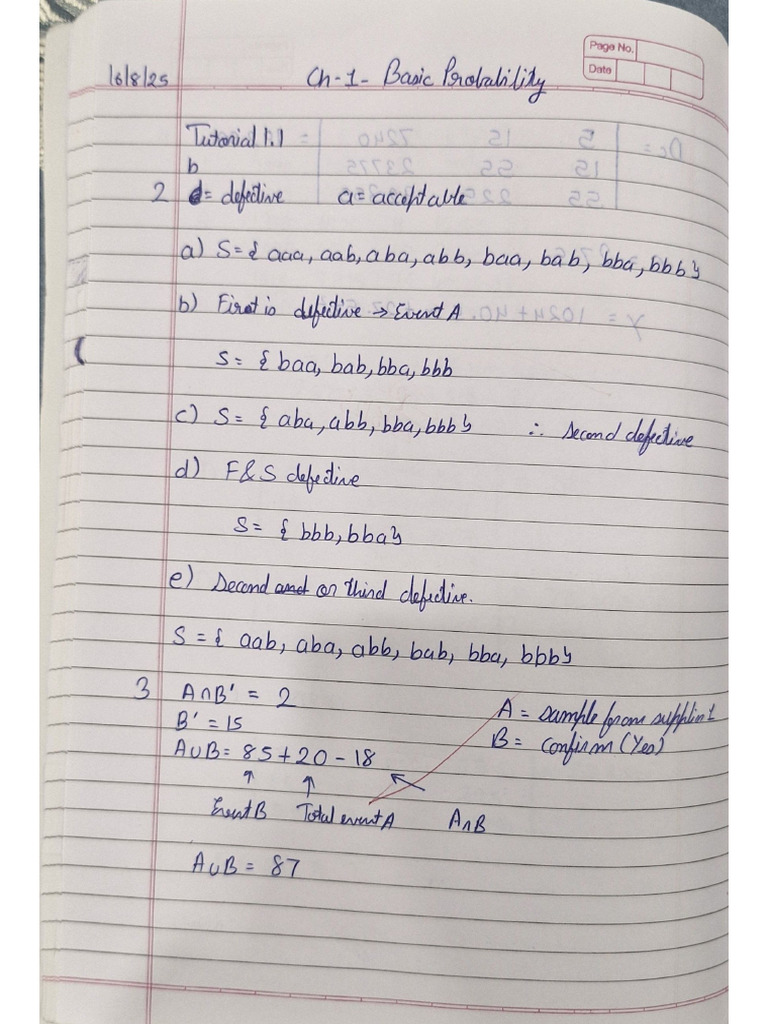 Page No.
Date
16/8/25 Ch-1- Basic Probability
Tutorial 1.1
b
2 d= defective a= acceptable
a) S={ aaa, aab, aba, abb, baa, bab, bba, bbb}
b) First is defective → Event A
S= { baa, bab, bba, bbb
c) S= { aba, abb, bba, bbb} ∴ second defective
d) F&S defective
S= { bbb, bba}
e) Second and or third defective.
S= { aab, aba, abb, bab, bba, bbb}
3 A∩B' = 2
A = sample from supplier 1
B' = 15
B = confirm (Yes)
A∪B = 85+20-18
↑ ↑
Event B Total event A A∩B
A∪B = 87